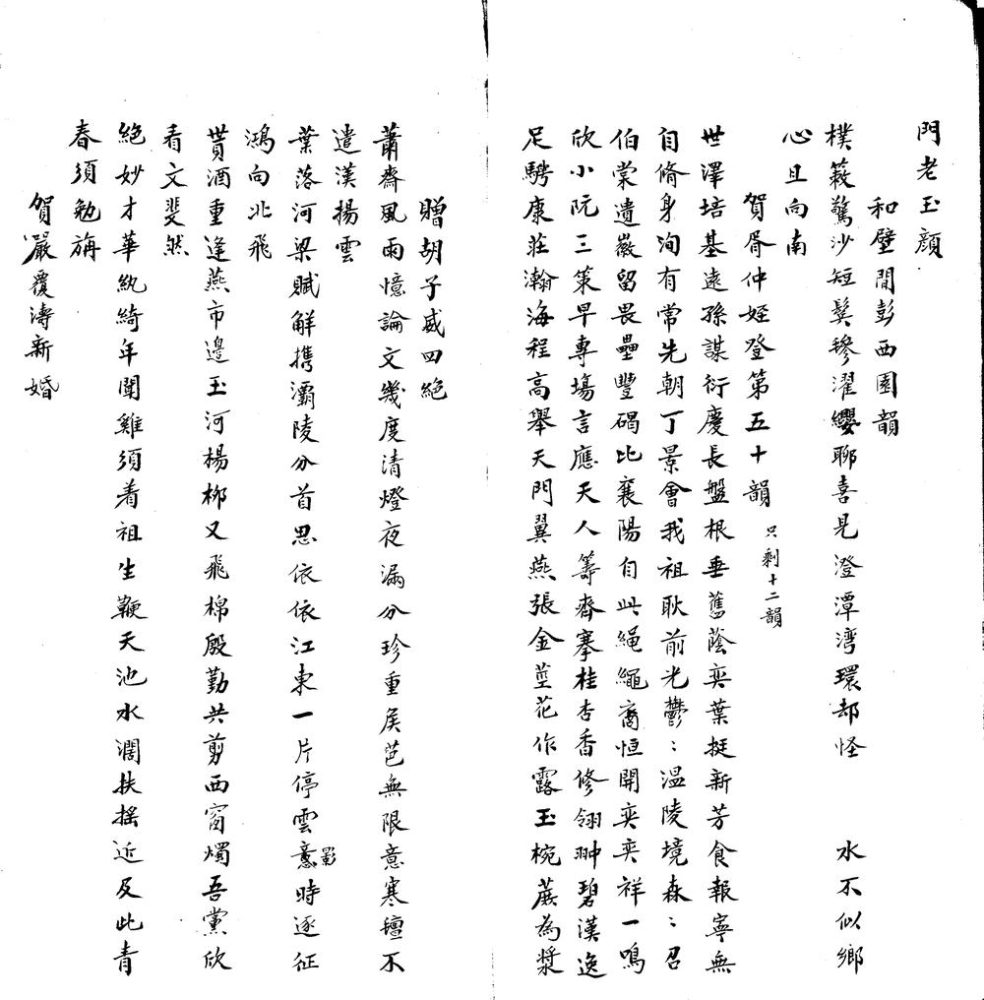 門老玉顏
和壁間彭西園韻
樸蔌驚沙短鬂鬖濯纓聊喜見澄潭灣環却怪 水不似鄉
心且向南
賀胥仲姪登第五十韻 只剩十二韻
世澤培基遠孫謀衍慶長盤根垂舊蔭奕葉挺新芳食報寧無
自脩身洵有常先朝丁景會我祖耿前光鬱〻溫陵境森〻召
伯棠遺徽留畏壘豐碣比襄陽自此繩繩裔恒開奕奕祥一鳴
欣小阮三策早專塲言應天人籌齊搴桂杏香修翎翀碧漢逸
足騁康莊瀚海程高舉天門翼燕張金莖花作露玉椀蔗為漿
贈胡子威四絕
蕭齋風雨憶論文幾度清燈夜漏分珍重矦芭無限意寒壇不
遣漢揚雲
葉落河梁賦解携灞陵分首思依依江東一片停雲意影時逐征
鴻向北飛
貰酒重逢燕市邊玉河楊柳又飛棉殷勤共剪西窗燭吾黨欣
看文斐然
絕妙才華紈綺年聞雞須着祖生鞭天池水濶扶搖近及此青
春須勉旃
賀嚴覆濤新婚